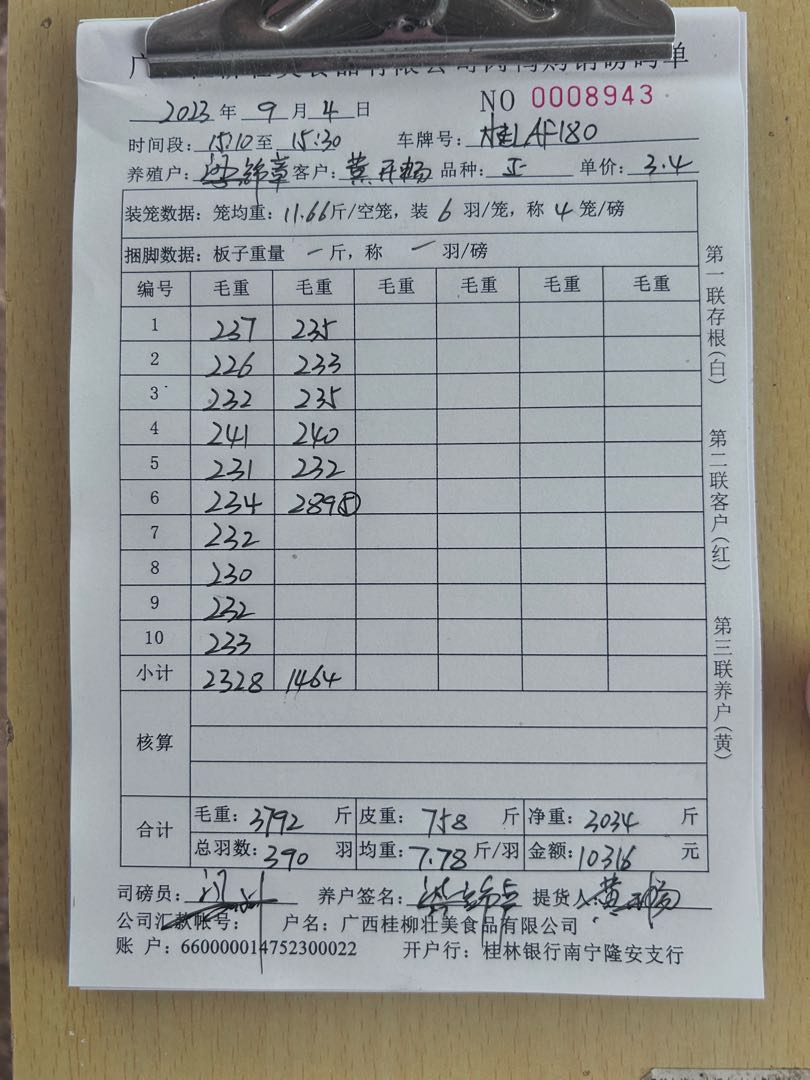 2023年 9月 4日 NO 0008943
时间段：15:10至 15:30 车牌号：桂LAF180
养殖户：梁锦章 客户：黄开杨 品种： 单价：3.4
装笼数据：笼均重：11.66斤/空笼，装 6 羽/笼，称 4 笼/磅
捆脚数据：板子重量 一斤，称 一 羽/磅
编号 毛重 毛重 毛重 毛重 毛重 毛重
1 237 235
2 226 233
3 232 235
4 241 240
5 231 232
6 234 289⑤
7 232
8 230
9 232
10 233
小计 2328 1464
核算
合计 毛重：3792 斤 皮重：758 斤 净重：3034 斤
总羽数：390 羽 均重：7.78 斤/羽 金额：10316 元
司磅员： 养户签名： 提货人：
公司汇款帐号： 户名：广西桂柳壮美食品有限公司
账 户：660000014752300022 开户行：桂林银行南宁隆安支行
第一联存根（白）
第二联客户（红）
第三联养户（黄）